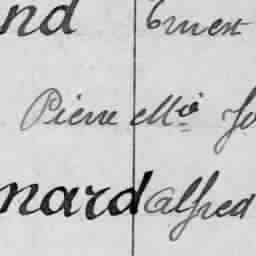 nd Ernest
Pierre Mie Jo
nard Alfred